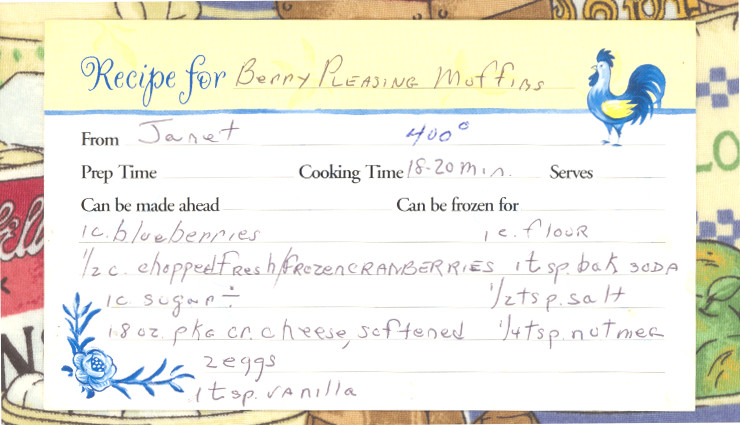 Recipe for Berry Pleasing Muffins
From Janet 400°
Prep Time Cooking Time 18-20 min. Serves
Can be made ahead Can be frozen for
1c. blueberries 1 c. flour
1/2 c. chopped fresh/frozen CRANBERRIES 1 tsp. bak SODA
1c sugar ÷ 1/2 tsp. salt
1-8 oz. pkg cr. cheese, softened 1/4 tsp. nutmeg
2 eggs
1 tsp. vanilla